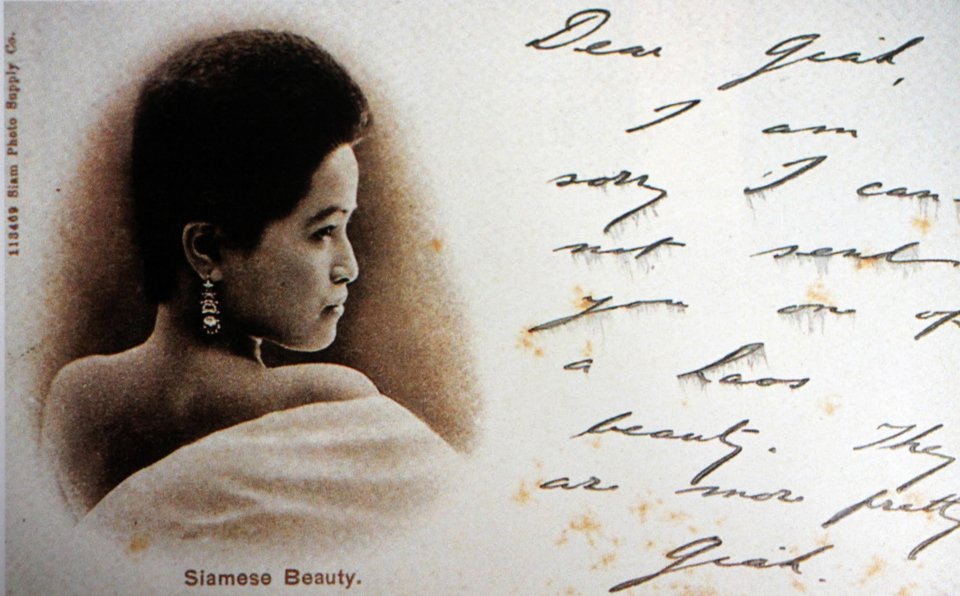 113469 Siam Photo Supply Co.
Siamese Beauty.
Dear Giah,
I am
sorry I can-
not send
you on of
a Laos
beauty. They
are more pretty
Giah.